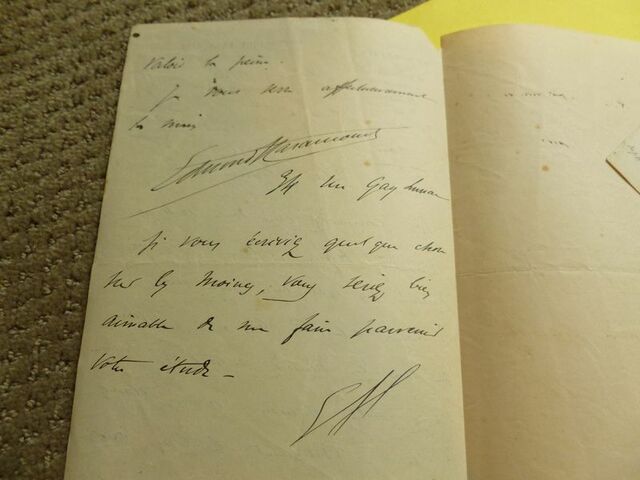 valoir la peine.
Je vous serre affectueusement
la main
Edmond Haraucourt
Si vous écriviez quelque chose
sur les Moines, vous seriez bien
aimable de me faire parvenir
votre étude –
EH